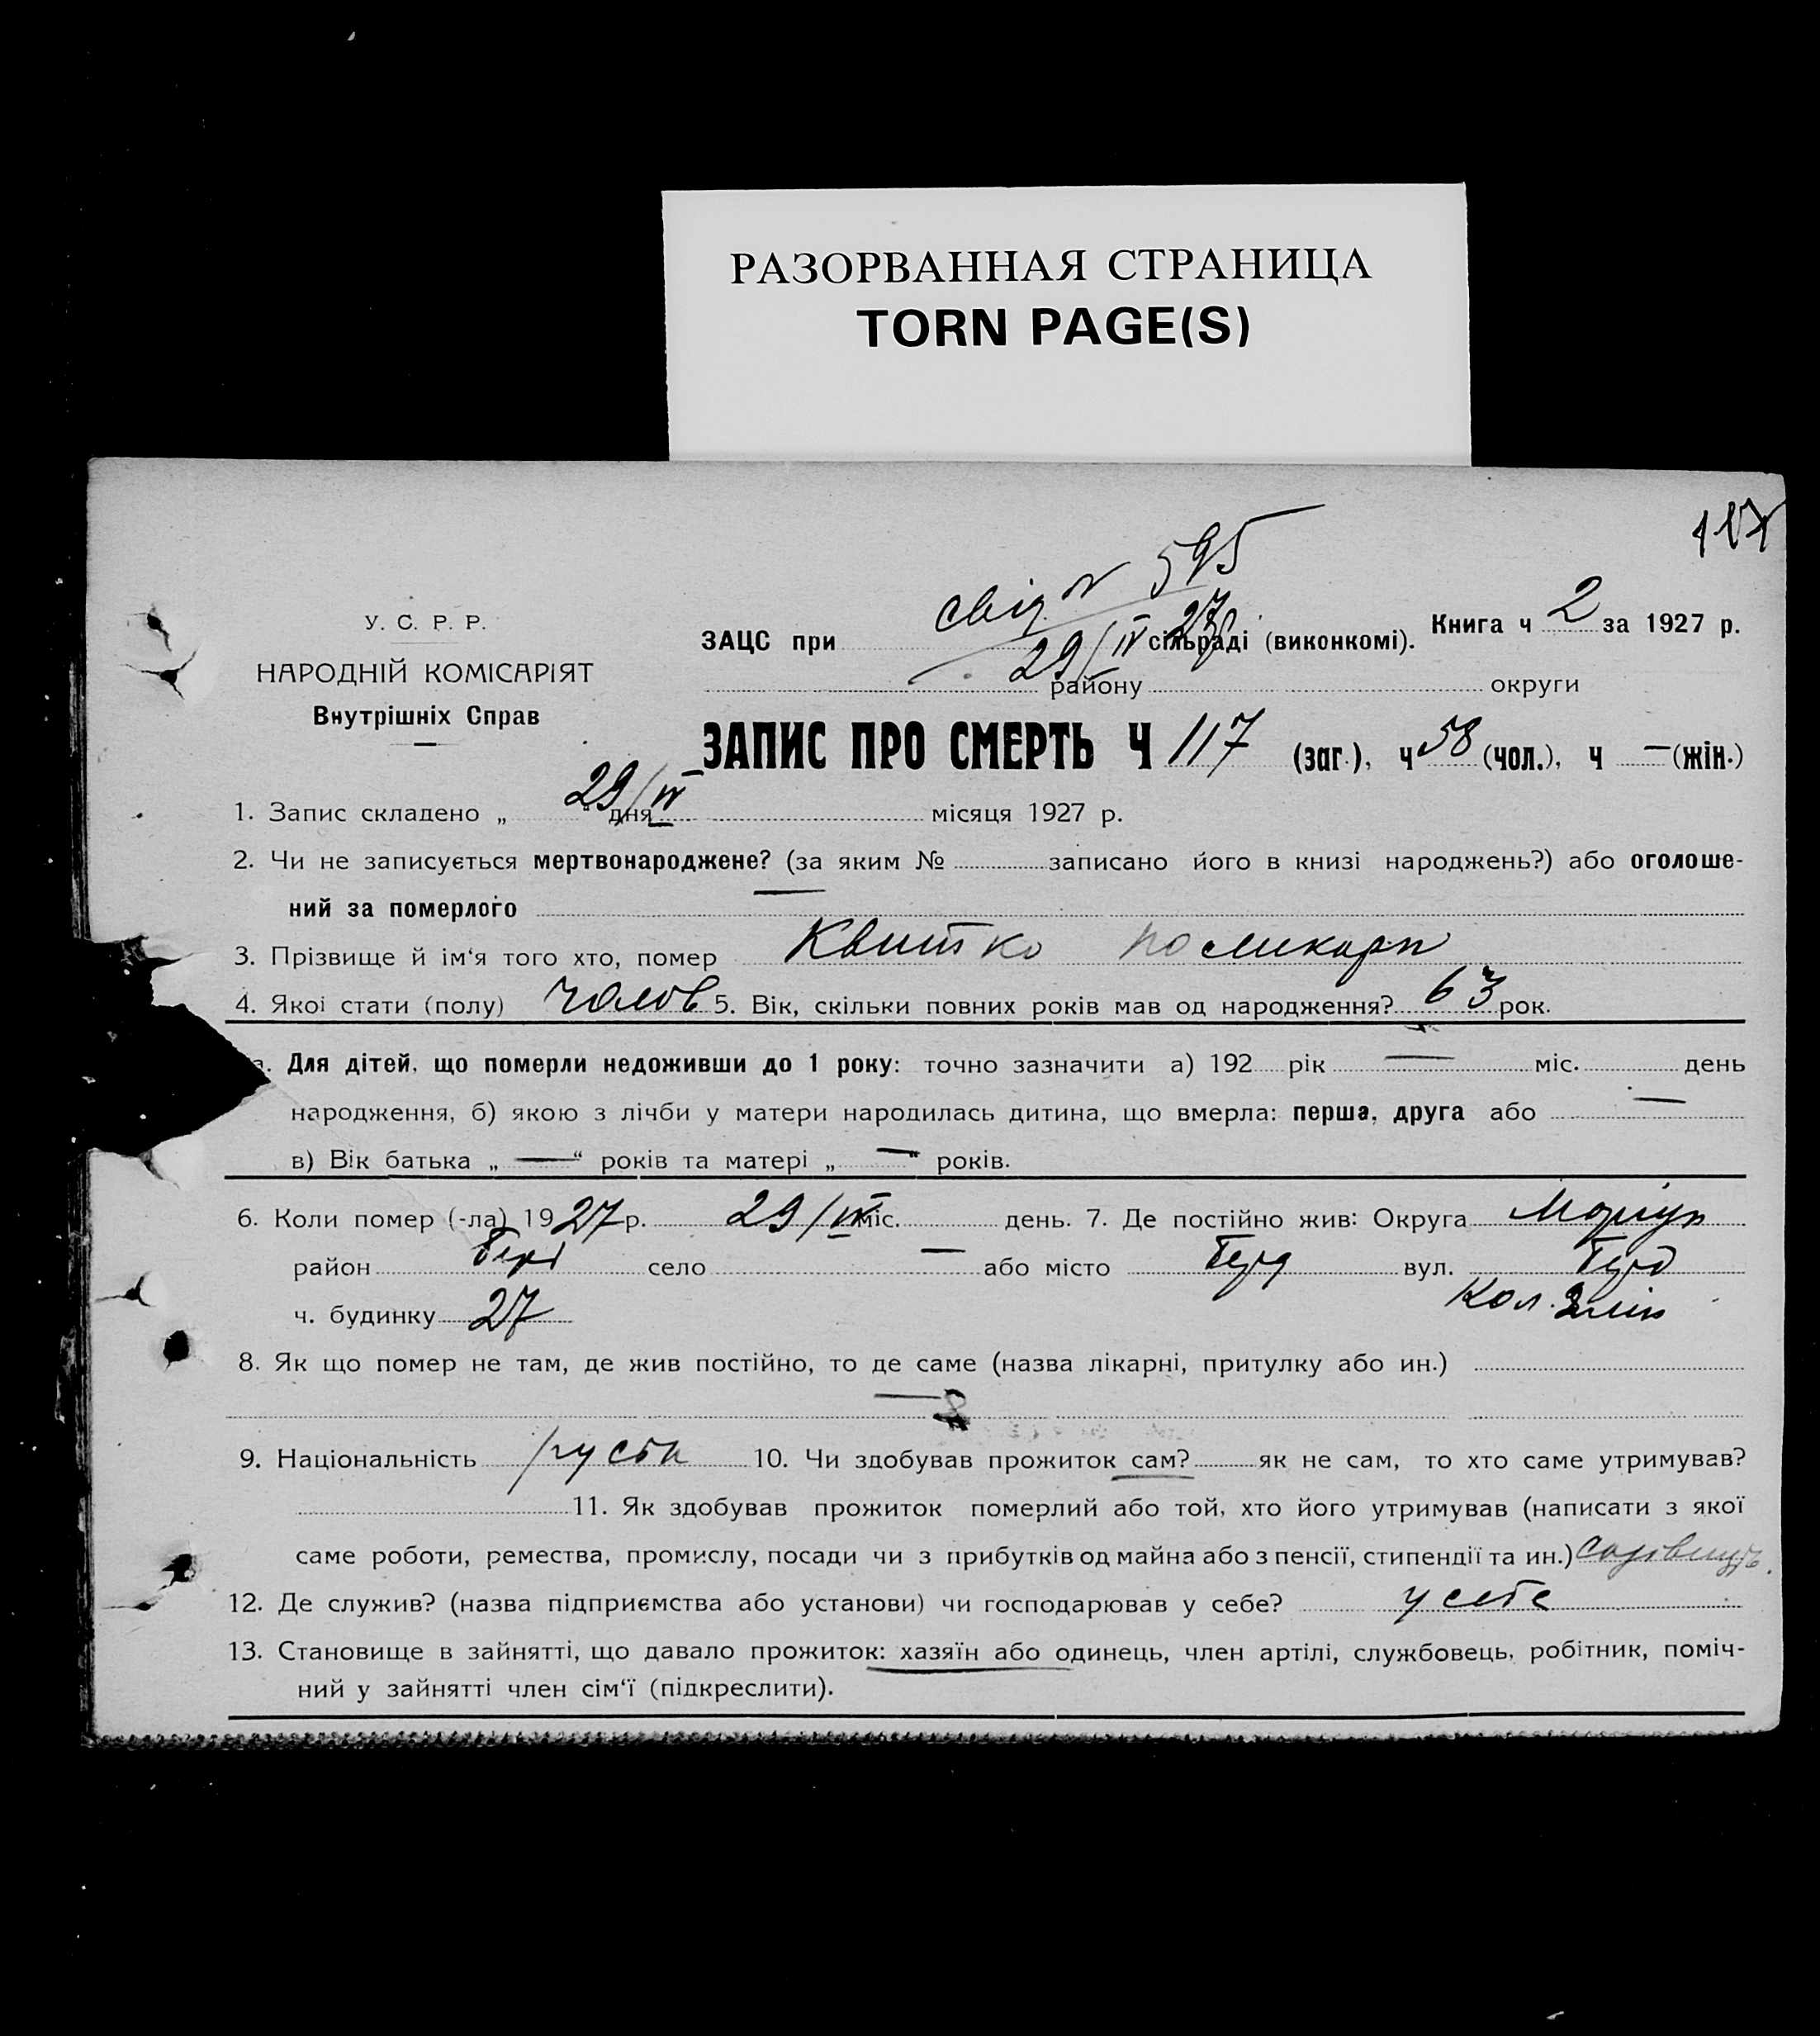 РАЗОРВАННАЯ СТРАНИЦА
TORN PAGE(S)
117
свід. № 595
29/IV 27р.
У. С. Р. Р.
НАРОДНІЙ КОМІСАРІЯТ
Внутрішніх Справ
ЗАЦС при сільраді (виконкомі). Книга ч 2 за 1927 р.
району округи
ЗАПИС ПРО СМЕРТЬ Ч 117 (заг.), ч 58 (чол.), ч — (жін.)
1. Запис складено „ 29/IV “ дня місяця 1927 р.
2. Чи не записується мертвонароджене? (за яким № записано його в книзі народжень?) або оголоше-
ний за померлого —
3. Прізвище й ім‘я того хто, помер Квитко Поликарп
4. Якої стати (полу) чолов 5. Вік, скільки повних років мав од народження? 63 рок.
а. Для дітей, що померли недоживши до 1 року: точно зазначити а) 192 рік — міс. день
народження, б) якою з лічби у матери народилась дитина, що вмерла: перша, друга або —
в) Вік батька „ — “ років та матері „ — “ років.
6. Коли помер (-ла) 1927 р. 29/IV міс. день. 7. Де постійно жив: Округа Маріуп
район Берд село — або місто Берд вул.
ч. будинку 27 Кол.
8. Як що помер не там, де жив постійно, то де саме (назва лікарні, притулку або ин.)
—
9. Національність руськ 10. Чи здобував прожиток сам? як не сам, то хто саме утримував?
11. Як здобував прожиток померлий або той, хто його утримував (написати з якої
саме роботи, ремества, промислу, посади чи з прибутків од майна або з пенсії, стипендії та ин.)
12. Де служив? (назва підприємства або установи) чи господарював у себе? у себе
13. Становище в зайнятті, що давало прожиток: хазяїн або одинець, член артілі, службовець, робітник, поміч-
ний у зайнятті член сім‘ї (підкреслити).